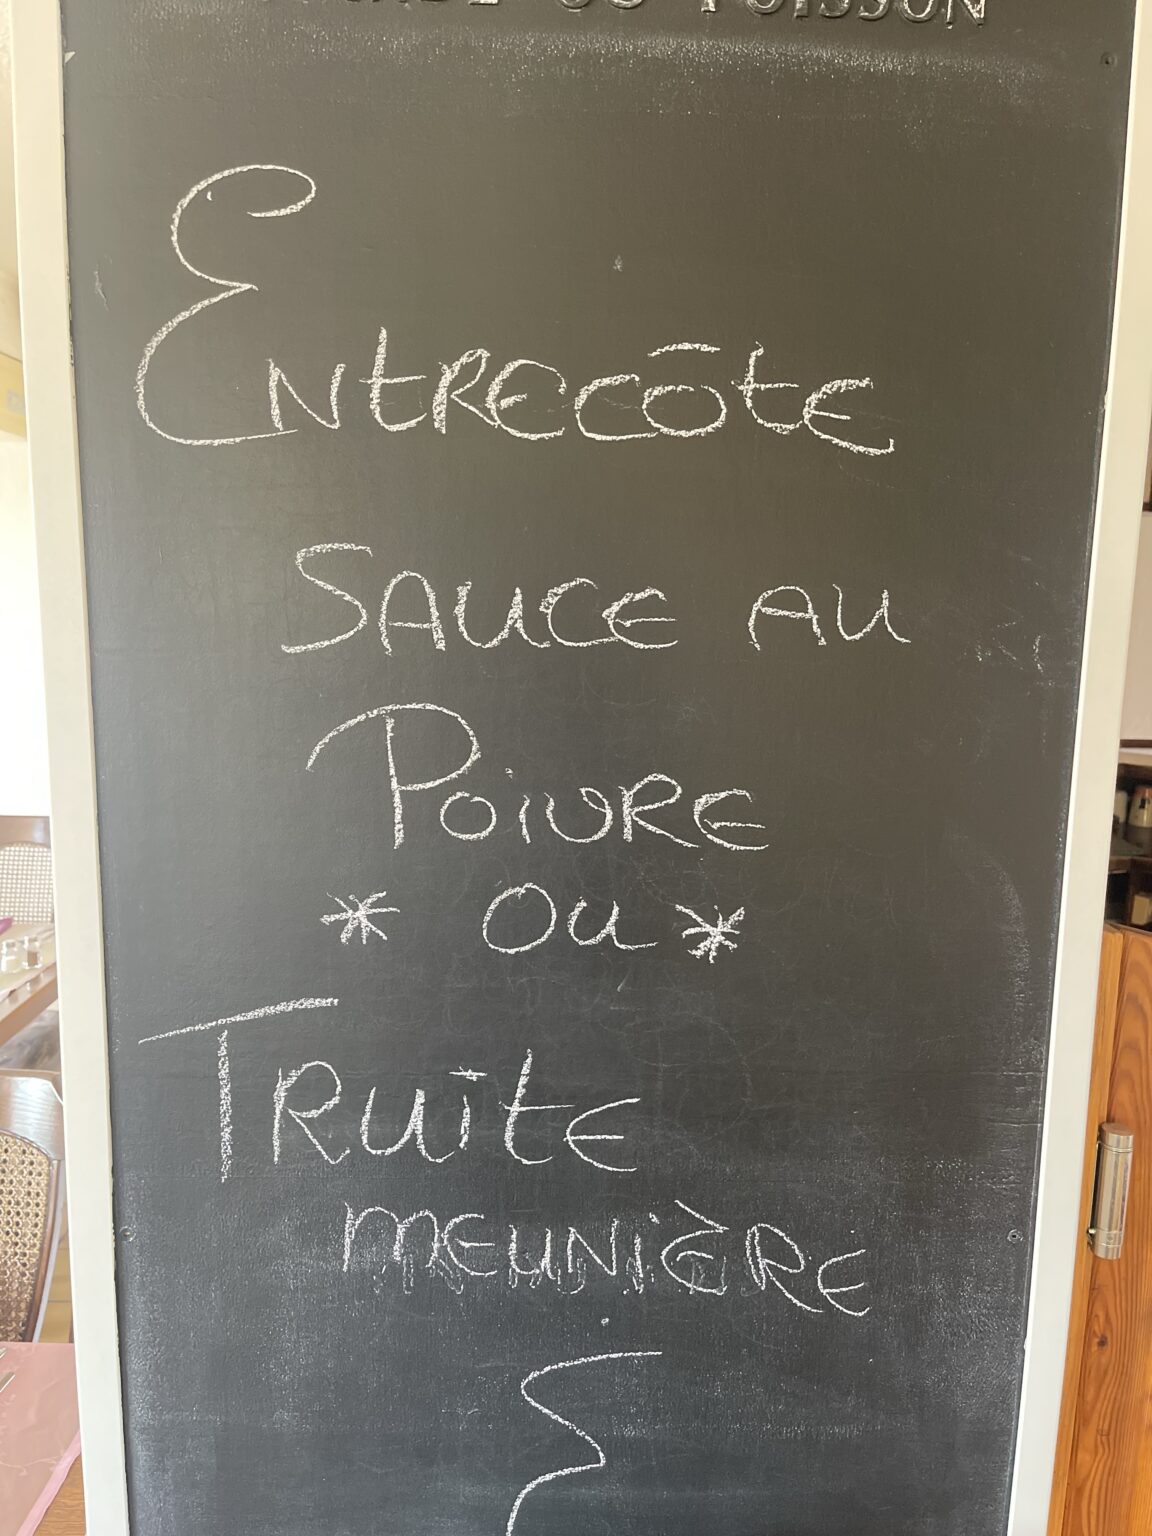 OU POISSON
Entrecōte
Sauce au
Poivre
* ou *
Truite
meunière